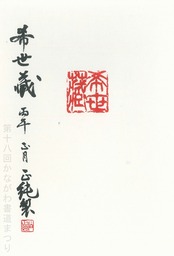 希世藏
丙午 正月 正純製
希世藏
第十八回かながわ書道まつり